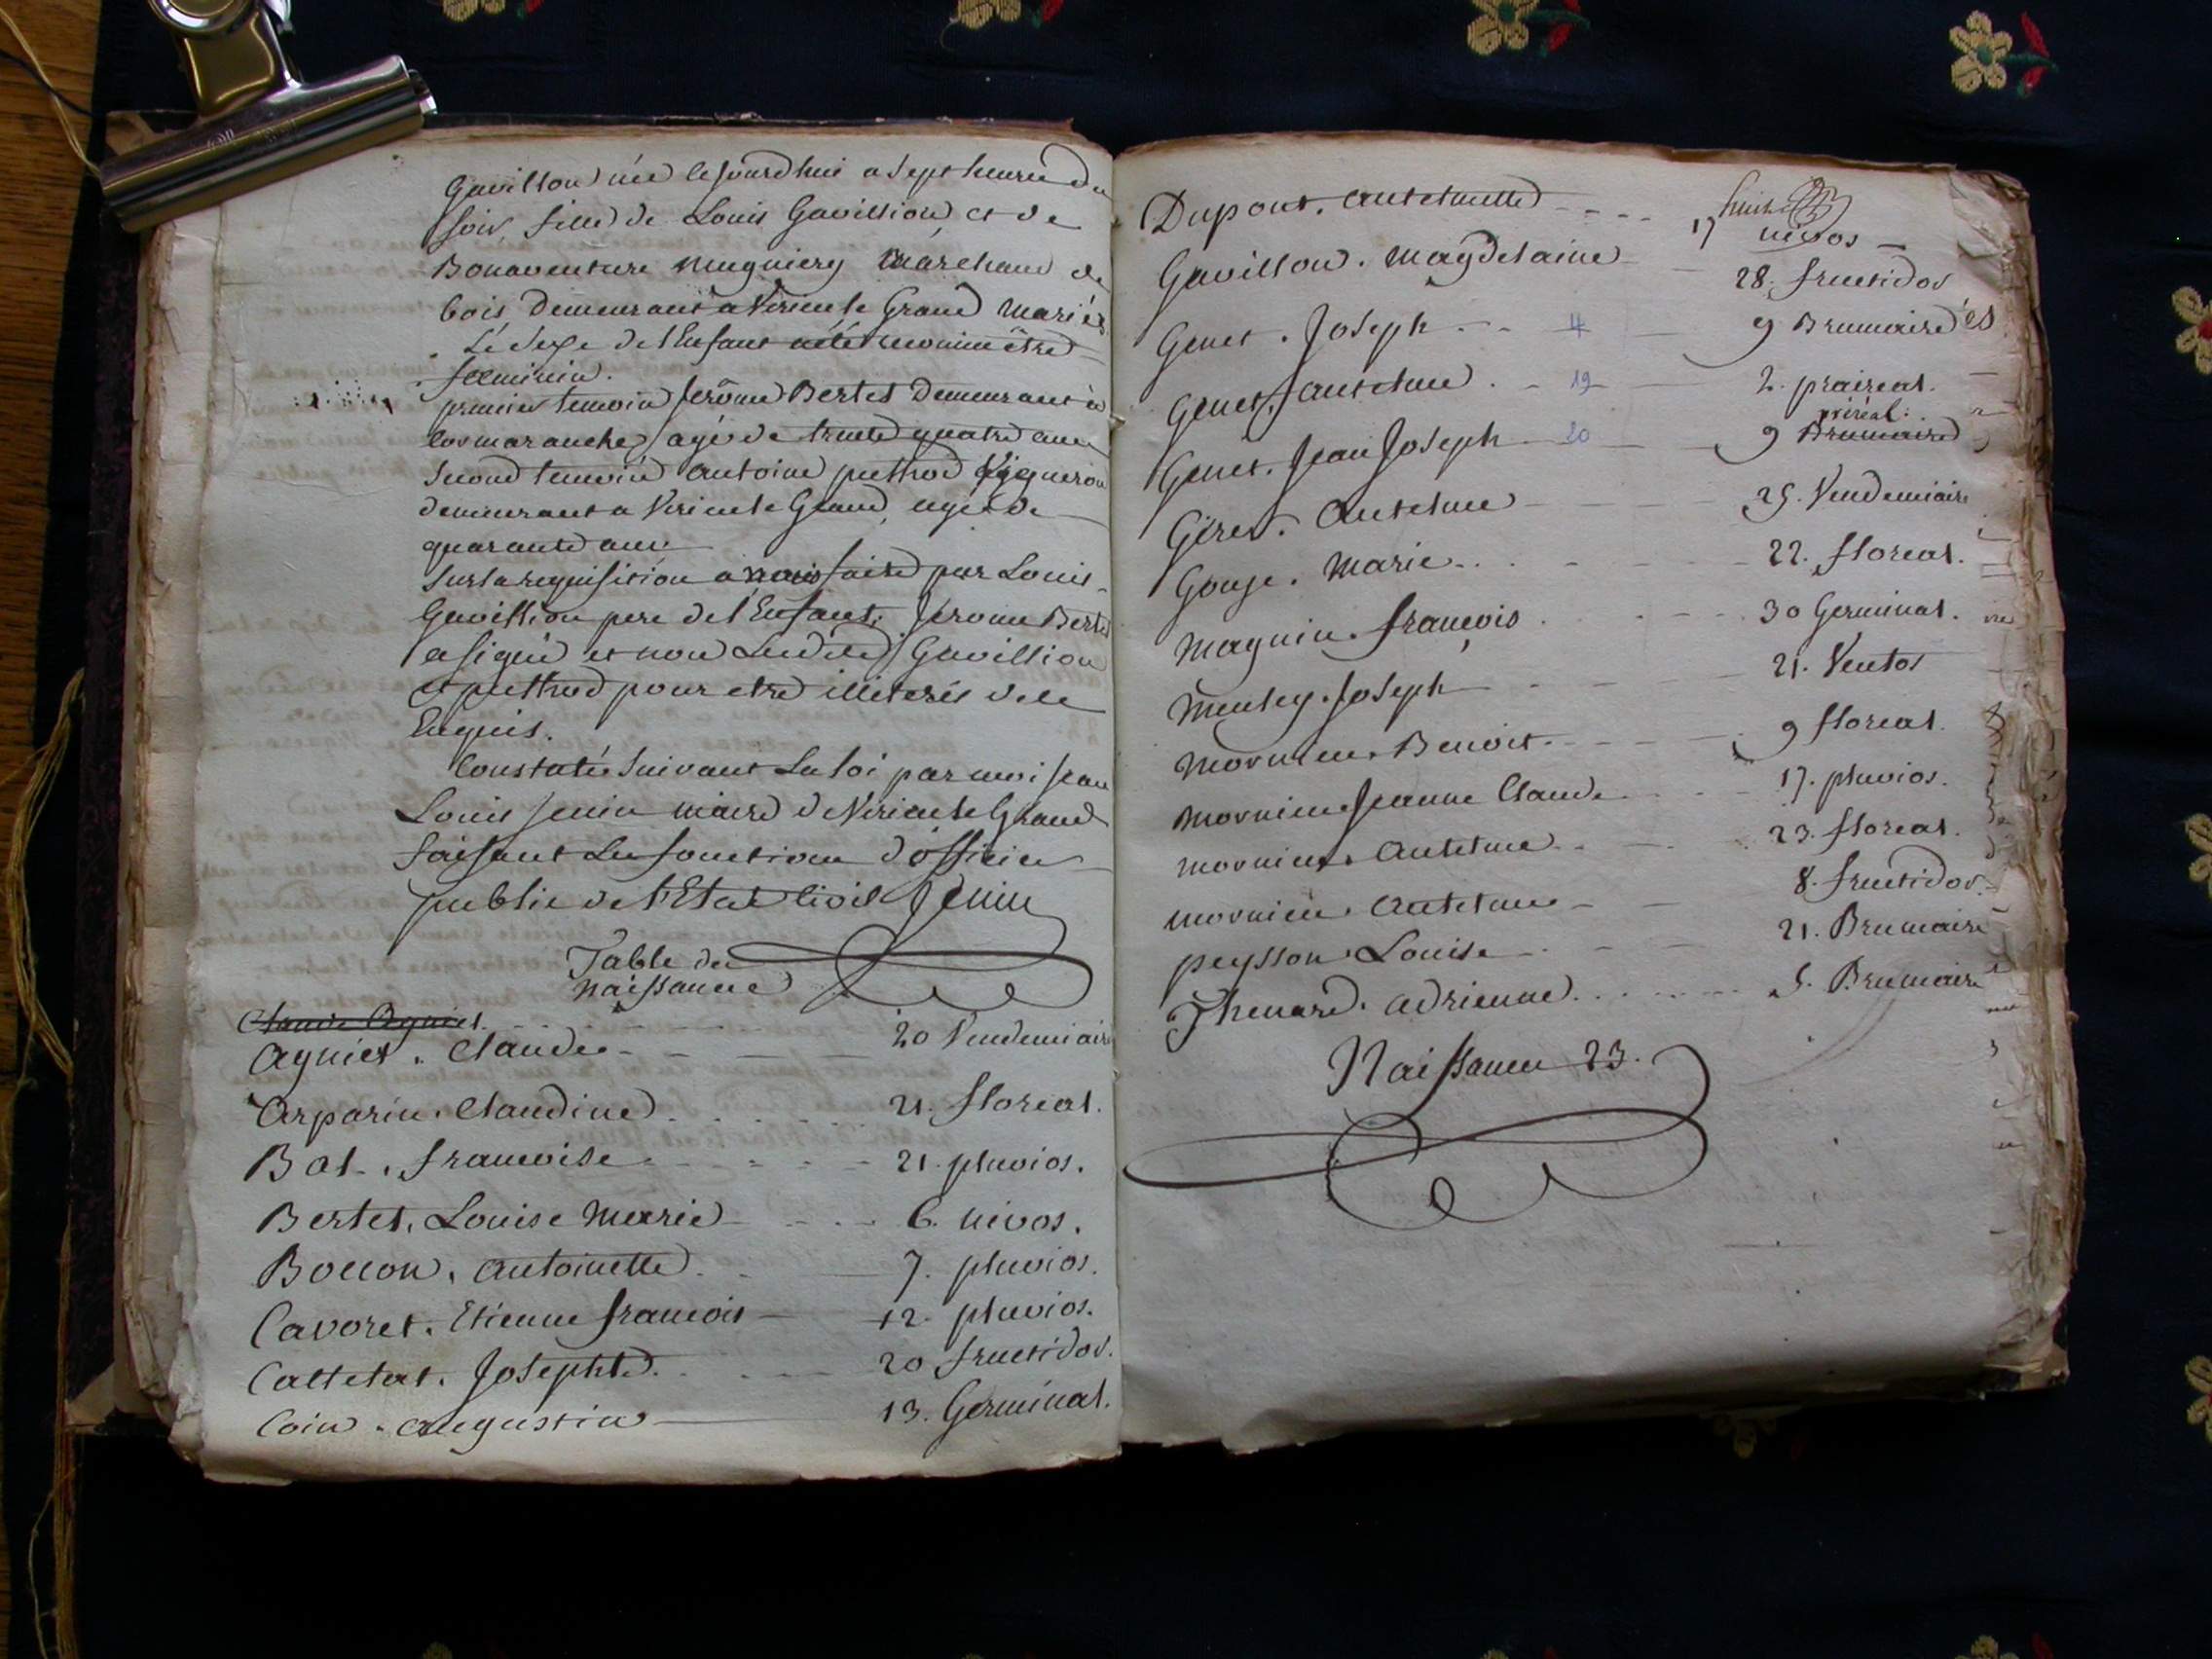 Gavillon née cejourdhui a Sept heures du
soir fille de Louis Gavillion, et de
Bonaventure mugniery Marchand de
bois Demeurant a Virieu le Grand Mariés
Le sexe de l'Enfant a été reconnu être
feminin.
premier temoin Jerôme Bertet Demeurant à
Cormaranche, agé de trente quatre ans
Second temoin Antoine puthod Vigneron
demeurant a Virieu le Grand, agé de
quarante ans
Sur la requisition a nous faite par Louis
Gavillion pere de l'Enfant. Jerome Bertet
a signé et non Gavillion
et puthod pour etre illiterés de ce
Enquis.
Constaté Suivant La loi par moi Jean
Louis Jenin maire de Virieu le Grand
faisant Les fonctions d'officier
public de l'Etat Civil Jenin
Table des
naissances
Claude Agniet.
Agniet. Claude 20 Vendemiaire
Arparin. Claudine 21. floreal.
Bal. francoise 21. pluvios.
Bertet, Louise Marie 6. nivos.
Bollon, Antoinette 7. pluvios.
Cavoret. Etienne francois 12. pluvios.
Cattelat. Josephte 20 fructidor.
Coin. Augustin 13. Germinal.
Dupont. Anthelmette 17 nivos
Gavillon. Magdelaine 28. fructidor
Genet. Joseph 4 9 Brumaire
Genet. Anthelme 19 2. praireal.
prireal.
Genet. Jean Joseph 20 9 Brumaire
Giret. Anthelme 25. Vendemiaire
Gouje. Marie 22. floreal.
Magnin. francois 30 Germinal.
Menley. Joseph 21. Ventos
Mornieu. Benoit 9 floreal.
Mornieu Jeanne Claude 17. pluvios.
Mornieu. Anthelme 23. floreal.
Mornieu. Anthelme 8. fructidor.
peysson Louise 21. Brumaire
Thenard. Adrienne 5. Brumaire
Naissances 23.